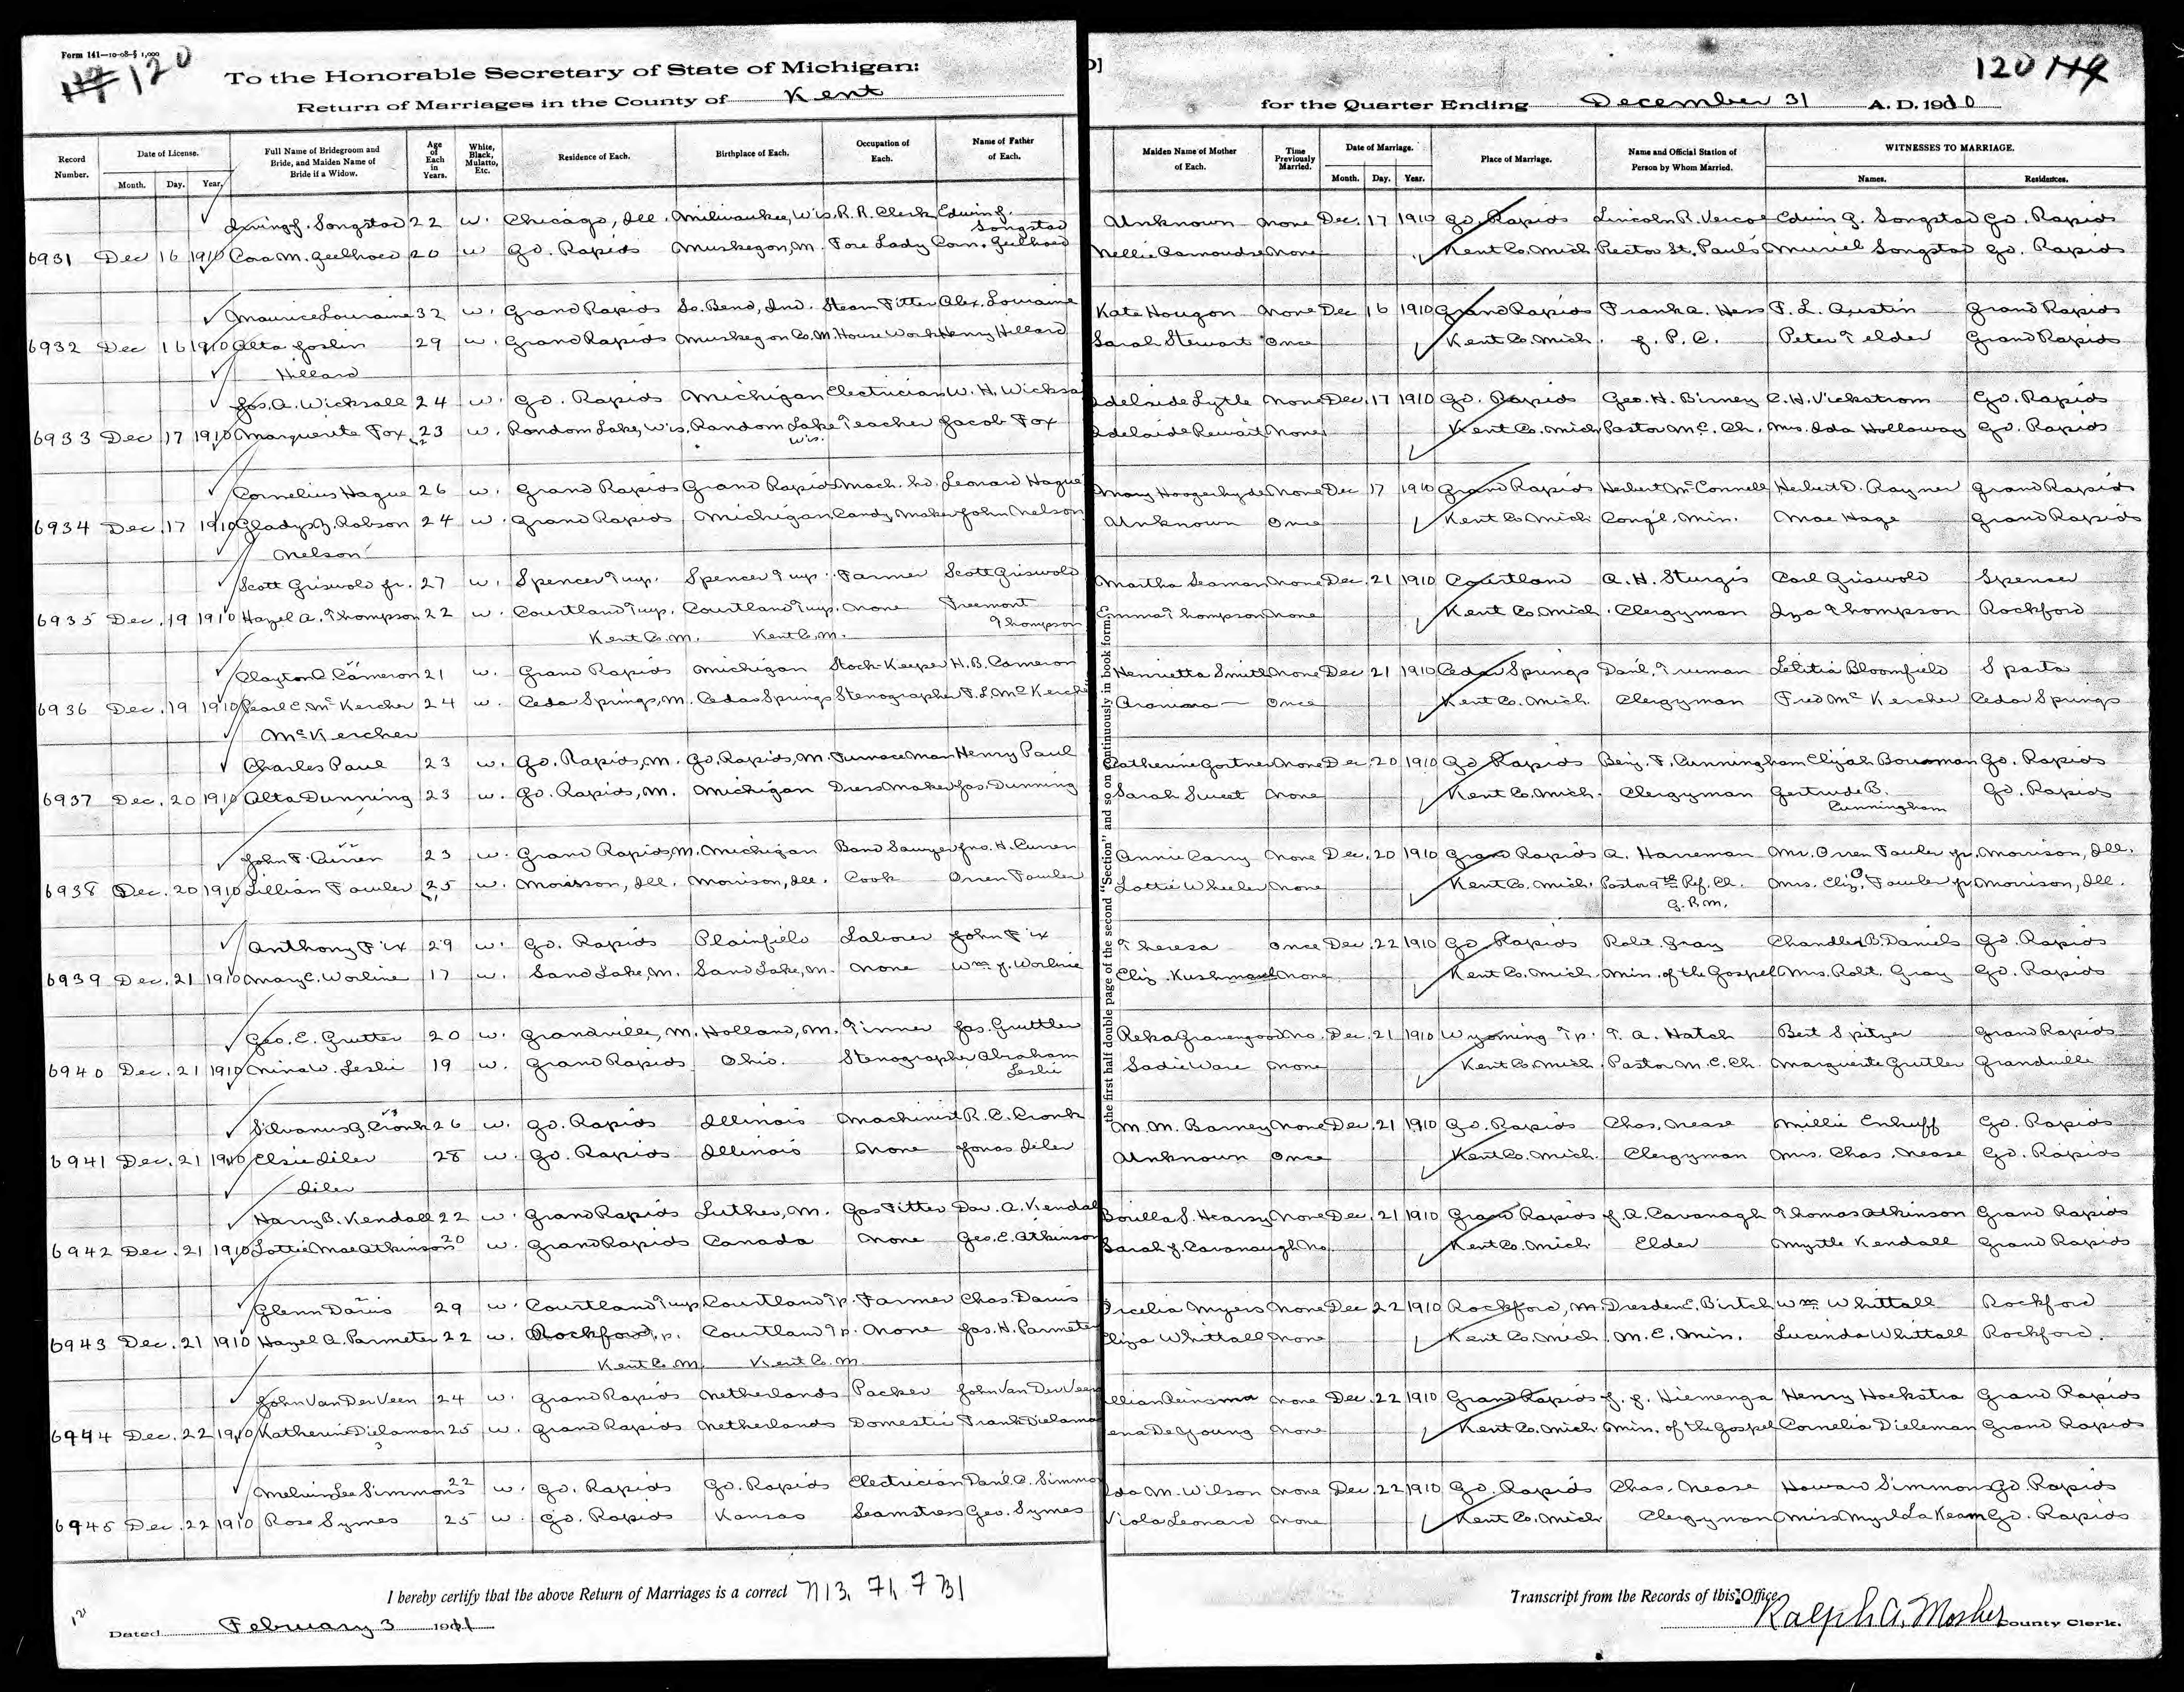 Form 141—10-08-§ 1,000
120
To the Honorable Secretary of State of Michigan:
Return of Marriages in the County of Kent
for the Quarter Ending December 31 A. D. 1910
120
Record Number. Date of License. Month. Day. Year. Full Name of Bridegroom and Bride, and Maiden Name of Bride if a Widow. Age of Each in Years. White, Black, Mulatto, Etc. Residence of Each. Birthplace of Each. Occupation of Each. Name of Father of Each. Maiden Name of Mother of Each. Time Previously Married. Date of Marriage. Month. Day. Year. Place of Marriage. Name and Official Station of Person by Whom Married. WITNESSES TO MARRIAGE. Names. Residences.
Irving J. Songstad 22 w. Chicago, Ill. Milwaukee, Wis. R. R. Clerk Edwin J. Songstad Unknown None Dec. 17 1910 Gd. Rapids Lincoln R. Vercoe Edwin G. Songstad Gd. Rapids
6931 Dec 16 1910 Cora M. Geelhoed 20 w Gd. Rapids Muskegon, M. Fore Lady Corn. Geelhoed Nellie None Kent Co. Mich Rector St. Paul's Muriel Songstad Gd. Rapids
Maurice Louraine 32 w. Grand Rapids So. Bend, Ind. Steam Fitter Alex. Louraine Kate Hougon None Dec 16 1910 Grand Rapids Frank A. Hess F. L. Austin Grand Rapids
6932 Dec 16 1910 Alta Joslin 29 w. Grand Rapids Muskegon Co. M. House Work Henry Hillard Sarah Stewart Once Kent Co. Mich. J. P. C. Peter Telder Grand Rapids
Hillard
Jos. A. Wicksall 24 w. Gd. Rapids Michigan Electrician W. H. Wicksa Adelaide Lytle None Dec. 17 1910 Gd. Rapids Geo. H. Birney C. H. Vickstrom Gd. Rapids
6933 Dec 17 1910 Marguerite Fox 23 w. Random Lake, Wis. Random Lake Wis. Teacher Jacob Fox Adelaide None Kent Co. Mich Pastor M.E. Ch. Mrs. Ida Holloway Gd. Rapids
Cornelius Hague 26 w. Grand Rapids Grand Rapids Mach. hd. Leonard Hague Mary Hoogerhyde None Dec 17 1910 Grand Rapids Herbert McConnell Herbert D. Rayner Grand Rapids
6934 Dec. 17 1910 Gladys Z. Robson 24 w. Grand Rapids Michigan Candy Maker John Nelson Unknown Once Kent Co Mich Cong'l. Min. Mae Hage Grand Rapids
Nelson
Scott Griswold Jr. 27 w. Spencer Twp. Spencer Twp. Farmer Scott Griswold Martha Seaman None Dec. 21 1910 Courtland A. H. Sturgis Carl Griswold Spencer
6935 Dec. 19 1910 Hazel A. Thompson 22 w. Courtland Twp. Courtland Twp. None Freemont Thompson Emma Thompson None Kent Co Mich. Clergyman Iza Thompson Rockford
Kent Co. M. Kent Co. M.
Clayton C. Cameron 21 w. Grand Rapids Michigan Stock-Keeper H. B. Cameron Henrietta Smith None Dec 21 1910 Cedar Springs Danl. Truman Letitia Bloomfield Sparta
6936 Dec. 19 1910 Pearl E. McKercher 24 w. Cedar Springs, M. Cedar Springs Stenographer F. L. McKerche Once Kent Co. Mich. Clergyman Fred McKercher Cedar Springs
McKercher
Charles Paul 23 w. Gd. Rapids, M. Gd. Rapids, M. Furnace Man Henry Paul Catherine Gortner None Dec 20 1910 Gd Rapids Benj. F. Cunningham Elijah Bowman Gd. Rapids
6937 Dec. 20 1910 Alta Dunning 23 w. Gd. Rapids, M. Michigan Dress Maker Jas. Dunning Sarah Sweet None Kent Co. Mich. Clergyman Gertrude B. Cunningham Gd. Rapids
John F. Curren 23 w. Grand Rapids, M. Michigan Band Sawyer Jno. H. Curren Annie Carry None Dec. 20 1910 Grand Rapids A. Harreman Mr. Orren Fowler Jr. Morrison, Ill.
6938 Dec. 20 1910 Lillian Fowler 25 w. Morrison, Ill. Morrison, Ill. Cook Orren Fowler Lottie Wheeler None Kent Co. Mich. Pastor 9th Ref. Ch. G.R.M. Mrs. Eliz. Fowler Jr Morrison, Ill.
Anthony Fix 29 w. Gd. Rapids Plainfield Laborer John Fix Theresa Once Dec. 22 1910 Gd Rapids Robt. Gray Chandler B. Daniels Gd. Rapids
6939 Dec. 21 1910 Mary C. Worline 17 w. Sand Lake, M. Sand Lake, M. None Wm. J. Worline Eliz. Kushmaul None Kent Co. Mich. Min. of the Gospel Mrs. Robt. Gray Gd. Rapids
Geo. E. Grutter 20 w. Grandville, M. Holland, M. Tinner Jas. Gruttler Reka Gravengood No. Dec. 21 1910 Wyoming Tp. T. A. Hatch Bert Spitzer Grand Rapids
6940 Dec. 21 1910 Nina W. Leslie 19 w. Grand Rapids Ohio. Stenographer Abraham Leslie Sadie Ware None Kent Co. Mich. Pastor M. E. Ch. Marguerite Grutler Grandville
Silvanus G. Cronk 26 w. Gd. Rapids Illinois Machinist R. C. Cronk M. M. Barney None Dec. 21 1910 Gd. Rapids Chas. Nease Millie Enhuff Gd. Rapids
6941 Dec. 21 1910 Elsie Iiler 28 w. Gd. Rapids Illinois None Jonas Iiler Unknown Once Kent Co. Mich. Clergyman Mrs. Chas. Nease Gd. Rapids
Iiler
Harry B. Kendall 22 w. Grand Rapids Luther, M. Gas Fitter Dav. A. Kendal S. Hearsy None Dec. 21 1910 Grand Rapids J. A. Cavanagh Thomas Atkinson Grand Rapids
6942 Dec. 21 1910 Lottie Mae Atkinson 20 w. Grand Rapids Canada None Geo. E. Atkinson Sarah J. Cavanaugh No. Kent Co. Mich. Elder Myrtle Kendall Grand Rapids
Glenn Davis 29 w. Courtland Twp. Courtland Tp. Farmer Chas. Davis Myers None Dec 22 1910 Rockford, M. Dresden E. Birtch Wm. Whittall Rockford
6943 Dec. 21 1910 Hazel A. Parmeter 22 w. Rockford, Courtland Tp. None Jas. H. Parmeter Eliza Whittall None Kent Co. Mich. M. E. Min. Lucinda Whittall Rockford.
Kent Co. M. Kent Co. M.
John Van Der Veen 24 w. Grand Rapids Netherlands Packer John Van Der Veen None Dec. 22 1910 Grand Rapids J. J. Hiemenga Henry Hoekstra Grand Rapids
6944 Dec. 22 1910 Katherine Dielaman 25 w. Grand Rapids Netherlands Domestic Frank Dielama ena De Young None Kent Co. Mich. Min. of the Gospel Cornelia Dieleman Grand Rapids
Melvin Lee Simmons 22 w. Gd. Rapids Gd. Rapids Electrician Danl. C. Simmo Ida M. Wilson None Dec. 22 1910 Gd. Rapids Chas. Nease Howard Simmons Gd. Rapids
6945 Dec. 22 1910 Rose Symes 25 w. Gd. Rapids Kansas Seamstress Geo. Symes Viola Leonard None Kent Co. Mich Clergyman Miss Kean Gd. Rapids
the first half double page of the second "Section" and so on continuously in book form.
I hereby certify that the above Return of Marriages is a correct
Transcript from the Records of this Office
Dated February 3 1911
Ralph A. Mosher County Clerk.